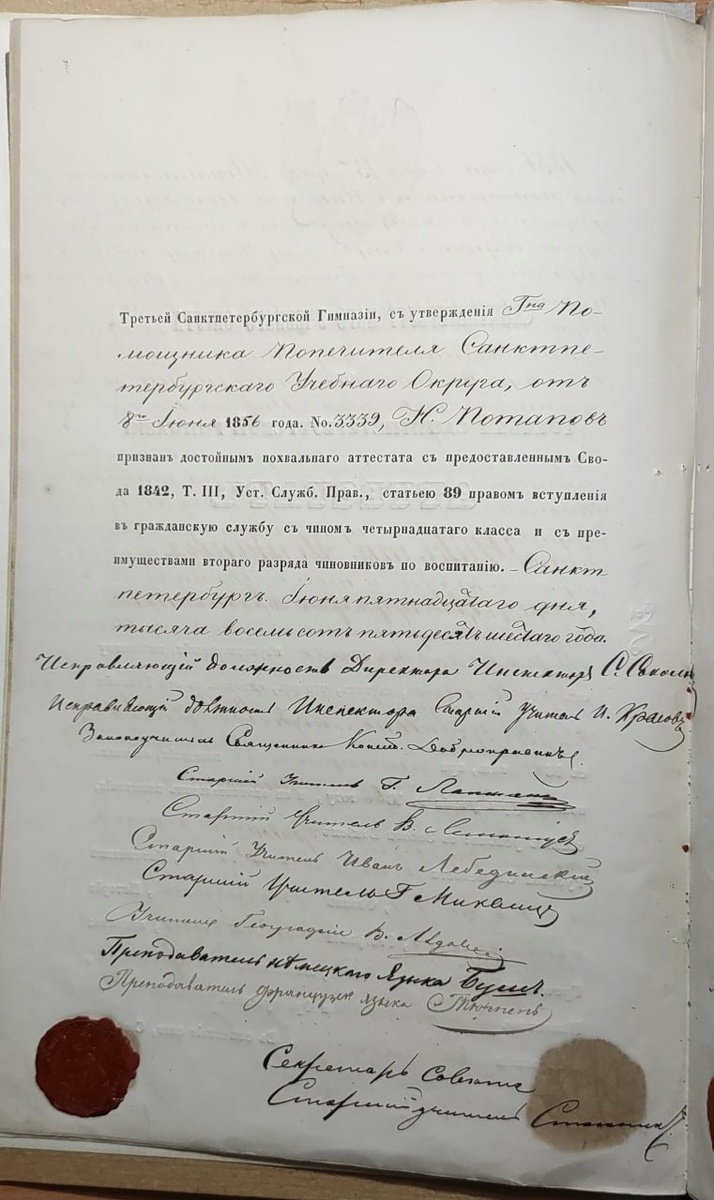 Третьей Санктпетербургской Гимназіи, съ утвержденія Гна По-
мощника Попечителя Санктпе-
тербургскаго Учебнаго Округа, отъ
8го Іюня 1856 года. No. 3339, Н. Потаповъ
признанъ достойнымъ похвальнаго аттестата съ предоставленнымъ Сво-
да 1842, Т. III, Уст. Служб. Прав., статьею 89 правомъ вступленія
въ гражданскую службу съ чиномъ четырнадцатаго класса и съ пре-
имуществами втораго разряда чиновниковъ по воспитанію. – Санкт
петербургъ. Іюня пятнадцатаго дня,
тысяча восемьсотъ пятьдесятъ шестаго года.
Исправляющій должность Директора Инспекторъ С.
Исправляющій должность Инспектора Старшій Учитель И. Красовъ
Законоучитель Священникъ Конст. Добронравинъ.
Старшій Учитель Г. Лапшинъ
Старшій Учитель В.
Старшій Учитель Иванъ Лебединскій
Старшій Учитель Г.
Учитель Географіи В.
Преподаватель нѣмецкаго языка
Преподаватель француз. языка
Секретарь Совѣта
Старшій учитель